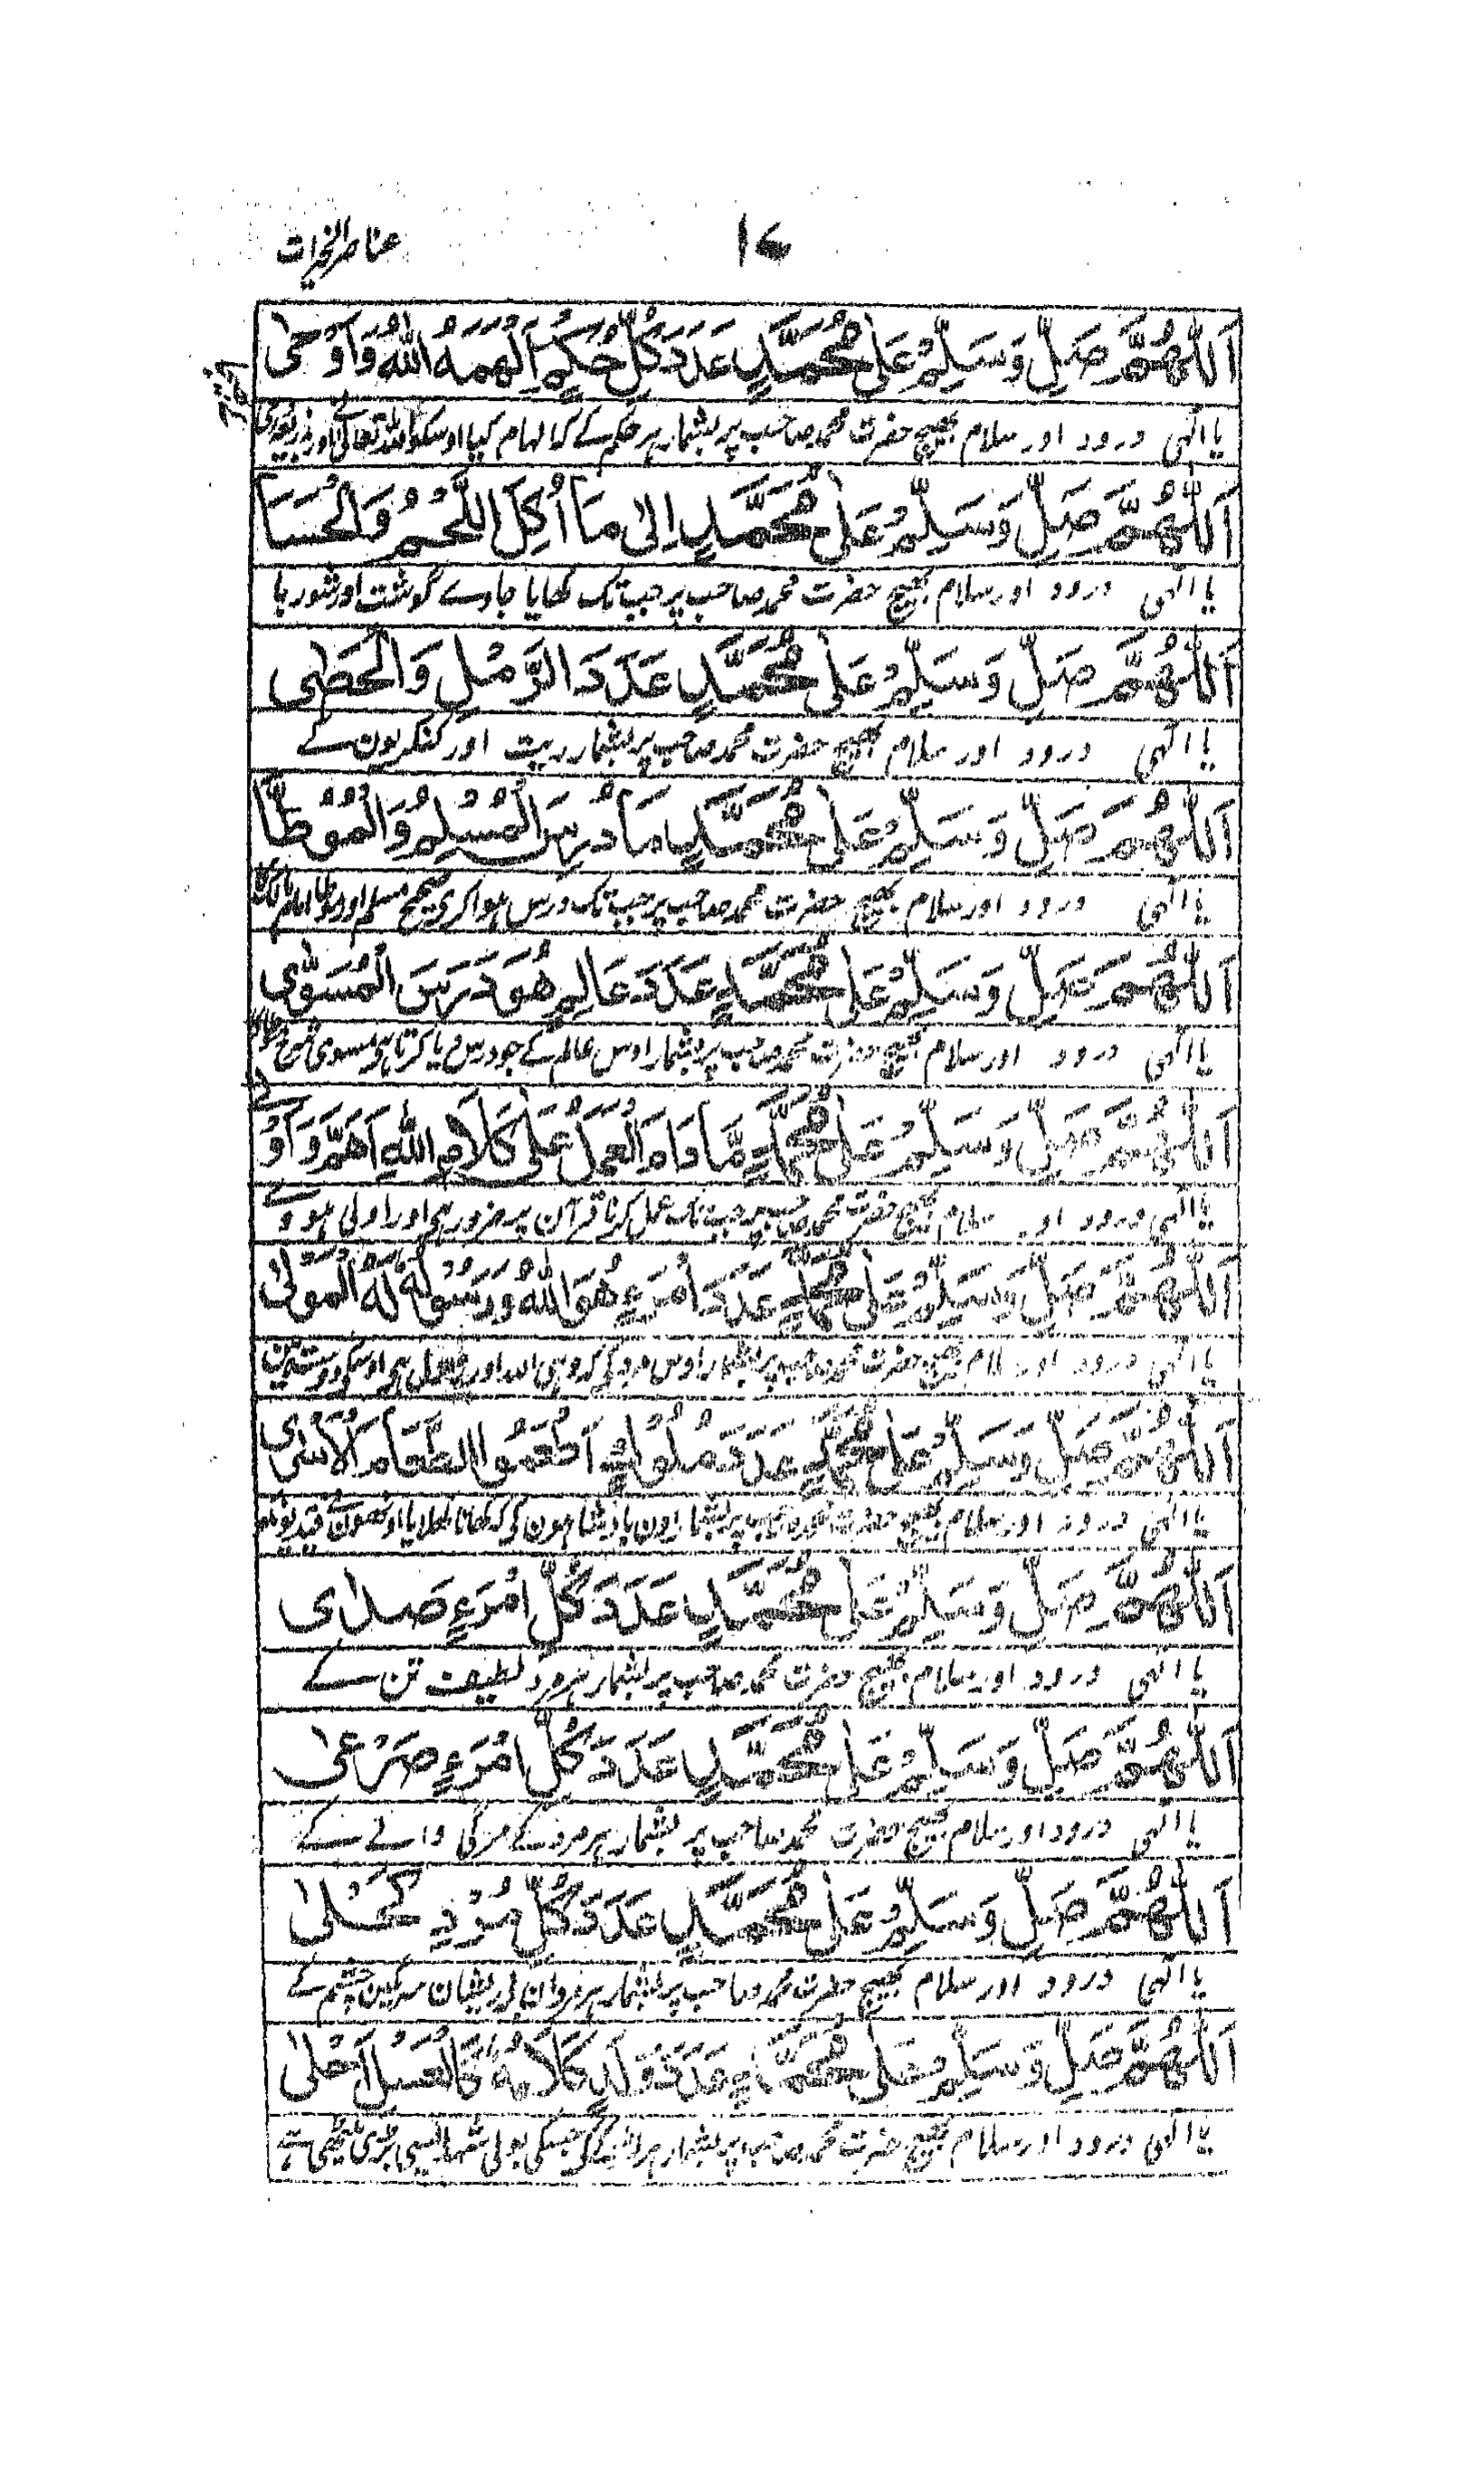 ۱۷ عناصر الخیرات
اَللّٰهُمَّ صَلِّ وَسَلِّمْ عَلٰى مُحَمَّدٍ عَدَدَ كُلِّ حُكْمٍ اَلْهَمَهُ اللّٰهُ وَاَوْحٰى
یا الٰهی درود اور سلام بھیج حضرت محمد صاحب پر بشمار ہر حکم کے کہ الہام کیا اوسکو اللہ تعالی نے اور
اَللّٰهُمَّ صَلِّ وَسَلِّمْ عَلٰى مُحَمَّدٍ اِلٰى مَا اُكِلَ اللَّحْمُ وَالْحَسَا
یا الٰهی درود اور سلام بھیج حضرت محمد صاحب پر جب تک کھایا جاوے گوشت اور شوربا
اَللّٰهُمَّ صَلِّ وَسَلِّمْ عَلٰى مُحَمَّدٍ عَدَدَ الرَّمْلِ وَالْحَصٰى
یا الٰهی درود اور سلام بھیج حضرت محمد صاحب پر بشمار ریت اور کنکریون کے
اَللّٰهُمَّ صَلِّ وَسَلِّمْ عَلٰى مُحَمَّدٍ مَا دُرِسَ الْمُسْلِمُ وَالْمُوَطَّا
یا الٰهی درود اور سلام بھیج حضرت محمد صاحب پر جب تک درس ہوا کری صحیح مسلم اور موطا امام
اَللّٰهُمَّ صَلِّ وَسَلِّمْ عَلٰى مُحَمَّدٍ عَدَدَ عَالِمٍ هُوَ دَرَسَ الْمُسَوّٰى
یا الٰهی درود اور سلام بھیج حضرت محمد صاحب پر بشمار اوس عالم کے جو درس دیا کرتا ہی مسوی شرح
اَللّٰهُمَّ صَلِّ وَسَلِّمْ عَلٰى مُحَمَّدٍ مَّا دَامَ الْعَمَلُ عَلٰى كَلَامِ اللّٰهِ اَهَمَّ وَاَوْ
یا الٰهی درود اور سلام بھیج حضرت محمد صاحب پر جب تک عمل کرنا قرآن پر ضرور ہی اور اولی ہووے
اَللّٰهُمَّ صَلِّ وَسَلِّمْ عَلٰى مُحَمَّدٍ عَدَدَ امْرَءٍ هُوَ اللّٰهُ وَرَسُوْلُهٗ لَهُ الْمَوْلٰى
یا الٰهی درود اور سلام بھیج حضرت محمد صاحب پر بشمار اوس مرد کی کہ وہی اللہ اور رسول ہی اوسکو
اَللّٰهُمَّ صَلِّ وَسَلِّمْ عَلٰى مُحَمَّدٍ عَدَدَ مُلُوْكٍ اَطْعَمُوا الطَّعَامَ الْاَسْرٰى
یا الٰهی درود اور سلام بھیج حضرت محمد صاحب پر بشمار اون بادشاہون کی کہ کھانا کھلایا اونھون نے
اَللّٰهُمَّ صَلِّ وَسَلِّمْ عَلٰى مُحَمَّدٍ عَدَدَ كُلِّ امْرَءٍ صَدٰى
یا الٰهی درود اور سلام بھیج حضرت محمد صاحب پر بشمار ہر مرد لطیف تن کے
اَللّٰهُمَّ صَلِّ وَسَلِّمْ عَلٰى مُحَمَّدٍ عَدَدَ كُلِّ امْرَءٍ صَرْعٰى
یا الٰهی درود اور سلام بھیج حضرت محمد صاحب پر بشمار ہر مرد کے مرگی والے کے
اَللّٰهُمَّ صَلِّ وَسَلِّمْ عَلٰى مُحَمَّدٍ عَدَدَ كُلِّ مُرْدٍ كَحْلٰى
یا الٰهی درود اور سلام بھیج حضرت محمد صاحب پر بشمار ہر سرگین چشم کے
اَللّٰهُمَّ صَلِّ وَسَلِّمْ عَلٰى مُحَمَّدٍ عَدَدَ وَلَدٍ كَلَامُهٗ كَالْعَسَلِ اَحْلٰى
یا الٰهی درود اور سلام بھیج حضرت محمد صاحب پر بشمار ہر جسکی بولی شہد ایسی بڑی میٹھی ہے